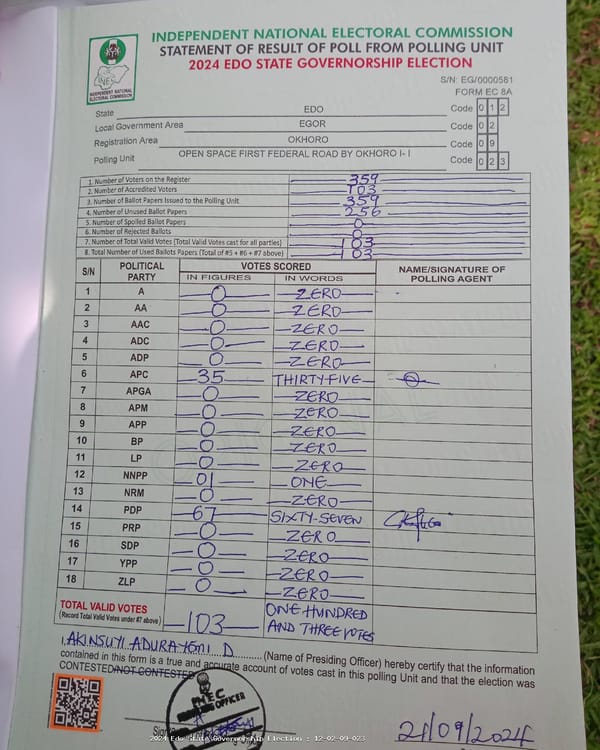 INDEPENDENT NATIONAL ELECTORAL COMMISSION
STATEMENT OF RESULT OF POLL FROM POLLING UNIT
2024 EDO STATE GOVERNORSHIP ELECTION
INDEPENDENT NATIONAL ELECTORAL COMMISSION
S/N: EG/0000581
FORM EC 8A
State EDO Code 0 1 2
Local Government Area EGOR Code 0 2
Registration Area OKHORO Code 0 9
Polling Unit OPEN SPACE FIRST FEDERAL ROAD BY OKHORO I- I Code 0 2 3
1. Number of Voters on the Register 359
2. Number of Accredited Voters 103
3. Number of Ballot Papers Issued to the Polling Unit 359
4. Number of Unused Ballot Papers 256
5. Number of Spoiled Ballot Papers 0
6. Number of Rejected Ballots 0
7. Number of Total Valid Votes (Total Valid Votes cast for all parties) 103
8. Total Number of Used Ballots Papers (Total of #5 + #6 + #7 above) 103
S/N POLITICAL PARTY VOTES SCORED NAME/SIGNATURE OF POLLING AGENT
IN FIGURES IN WORDS
1 A 0 ZERO
2 AA 0 ZERO
3 AAC 0 ZERO
4 ADC 0 ZERO
5 ADP 0 ZERO
6 APC 35 THIRTY-FIVE
7 APGA 0 ZERO
8 APM 0 ZERO
9 APP 0 ZERO
10 BP 0 ZERO
11 LP 0 ZERO
12 NNPP 01 ONE
13 NRM 0 ZERO
14 PDP 67 SIXTY-SEVEN
15 PRP 0 ZERO
16 SDP 0 ZERO
17 YPP 0 ZERO
18 ZLP 0 ZERO
TOTAL VALID VOTES
(Record Total Valid Votes under #7 above) 103 ONE HUNDRED AND THREE VOTES
I, AKINSUYI ADURAYEMI D (Name of Presiding Officer) hereby certify that the information
contained in this form is a true and accurate account of votes cast in this polling Unit and that the election was
CONTESTED/NOT CONTESTED
INEC
OFFICER
21/09/2024
2024 Edo State Governorship Election : 12-02-09-023